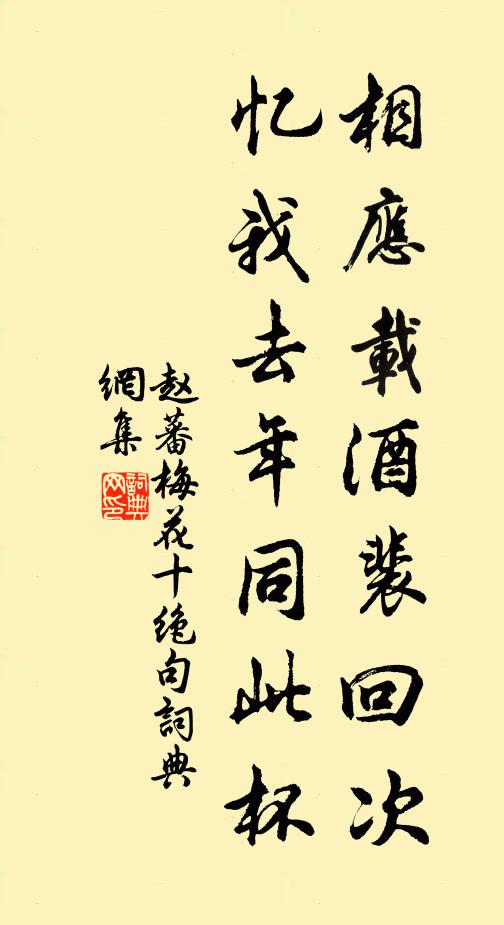 相應載酒裴回次
忆我去年同此杯
赵蕃梅花十绝句詞典
網集
詞典
网印